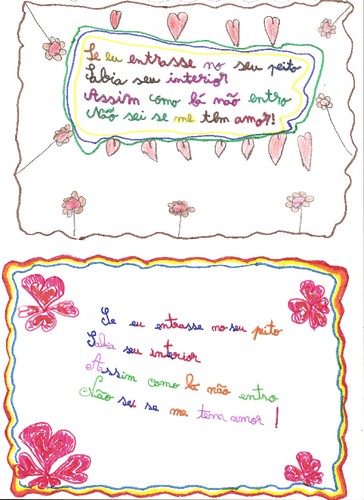 Se eu entrasse no seu peito
Sabia seu interior
Assim como lá não entro
Não sei se me têm amor!
Se eu entrasse no seu peito
Sabia seu interior
Assim como lá não entro
Não sei se me tem amor!